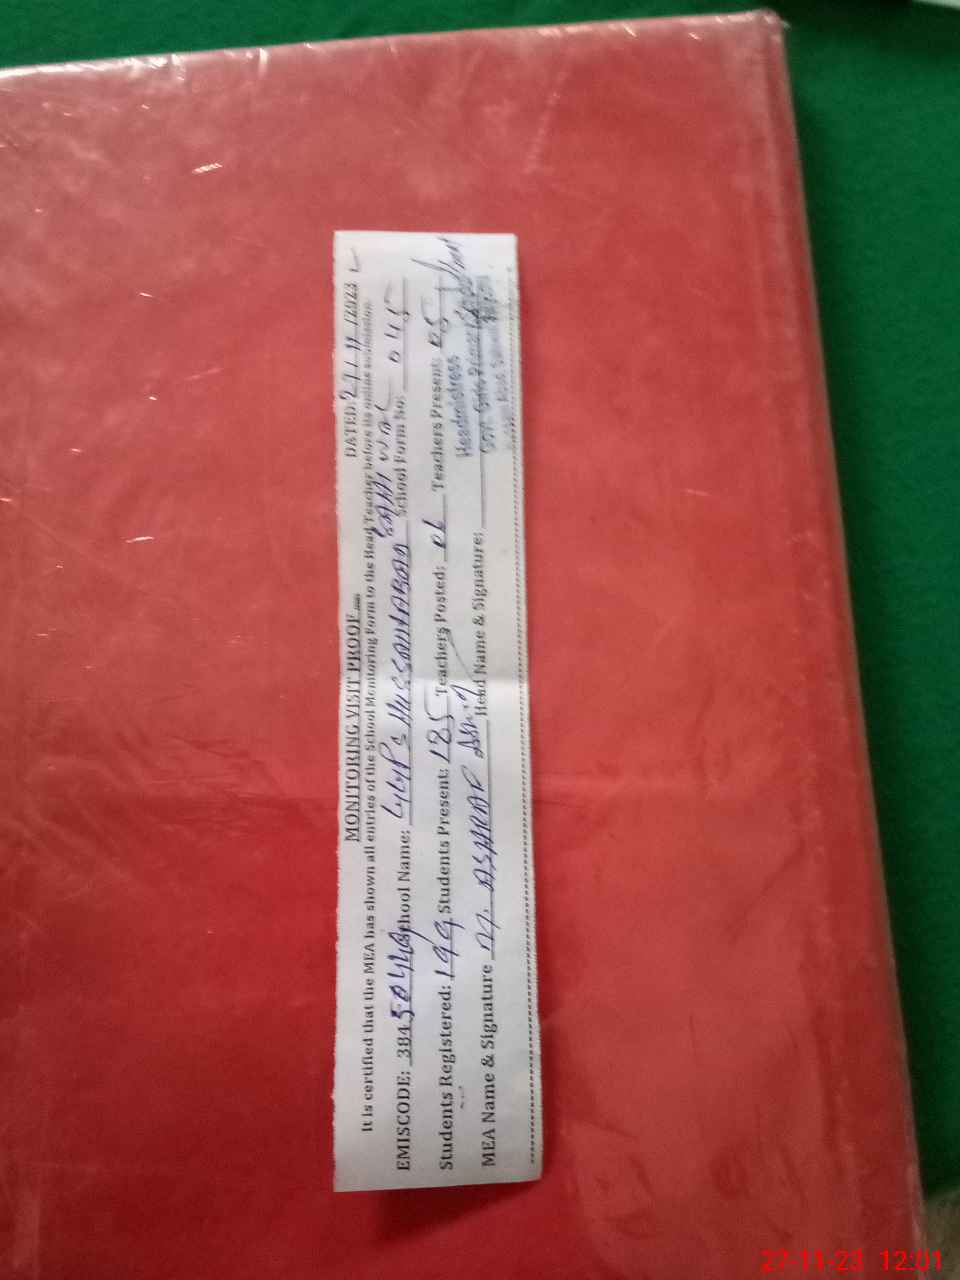 MONITORING VISIT PROOF
DATED: 27/11/2023
It is certified that the MEA has shown all entries of the School Monitoring Form to the Head Teacher before its online submission.
EMISCODE: 3845 School Name: HUSSAINABAD School Form No: 045
Students Registered: 199 Students Present: 185 Teachers Posted: 06 Teachers Present: 05
MEA Name & Signature M. ASHRAF Head Name & Signature:
Headmistress
27-11-23 12:01